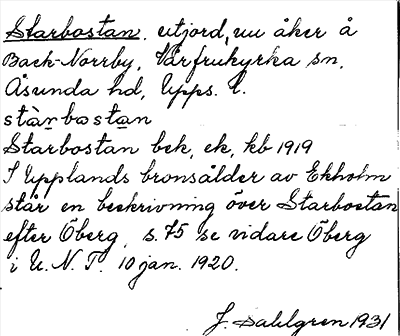 Starbostan, utjord, nu åker å
Back-Norrby, Vårfrukyrka sn,
Åsunda hd, Upps. l.
stàrbostan
Starbostan bek, ek, kb 1919
I Upplands bronsålder av Ekholm
står en beskrivning över Starbostan
efter Öberg, s. 75 se vidare Öberg
i U. N. T. 10 jan. 1920.
J. Dahlgren 1931